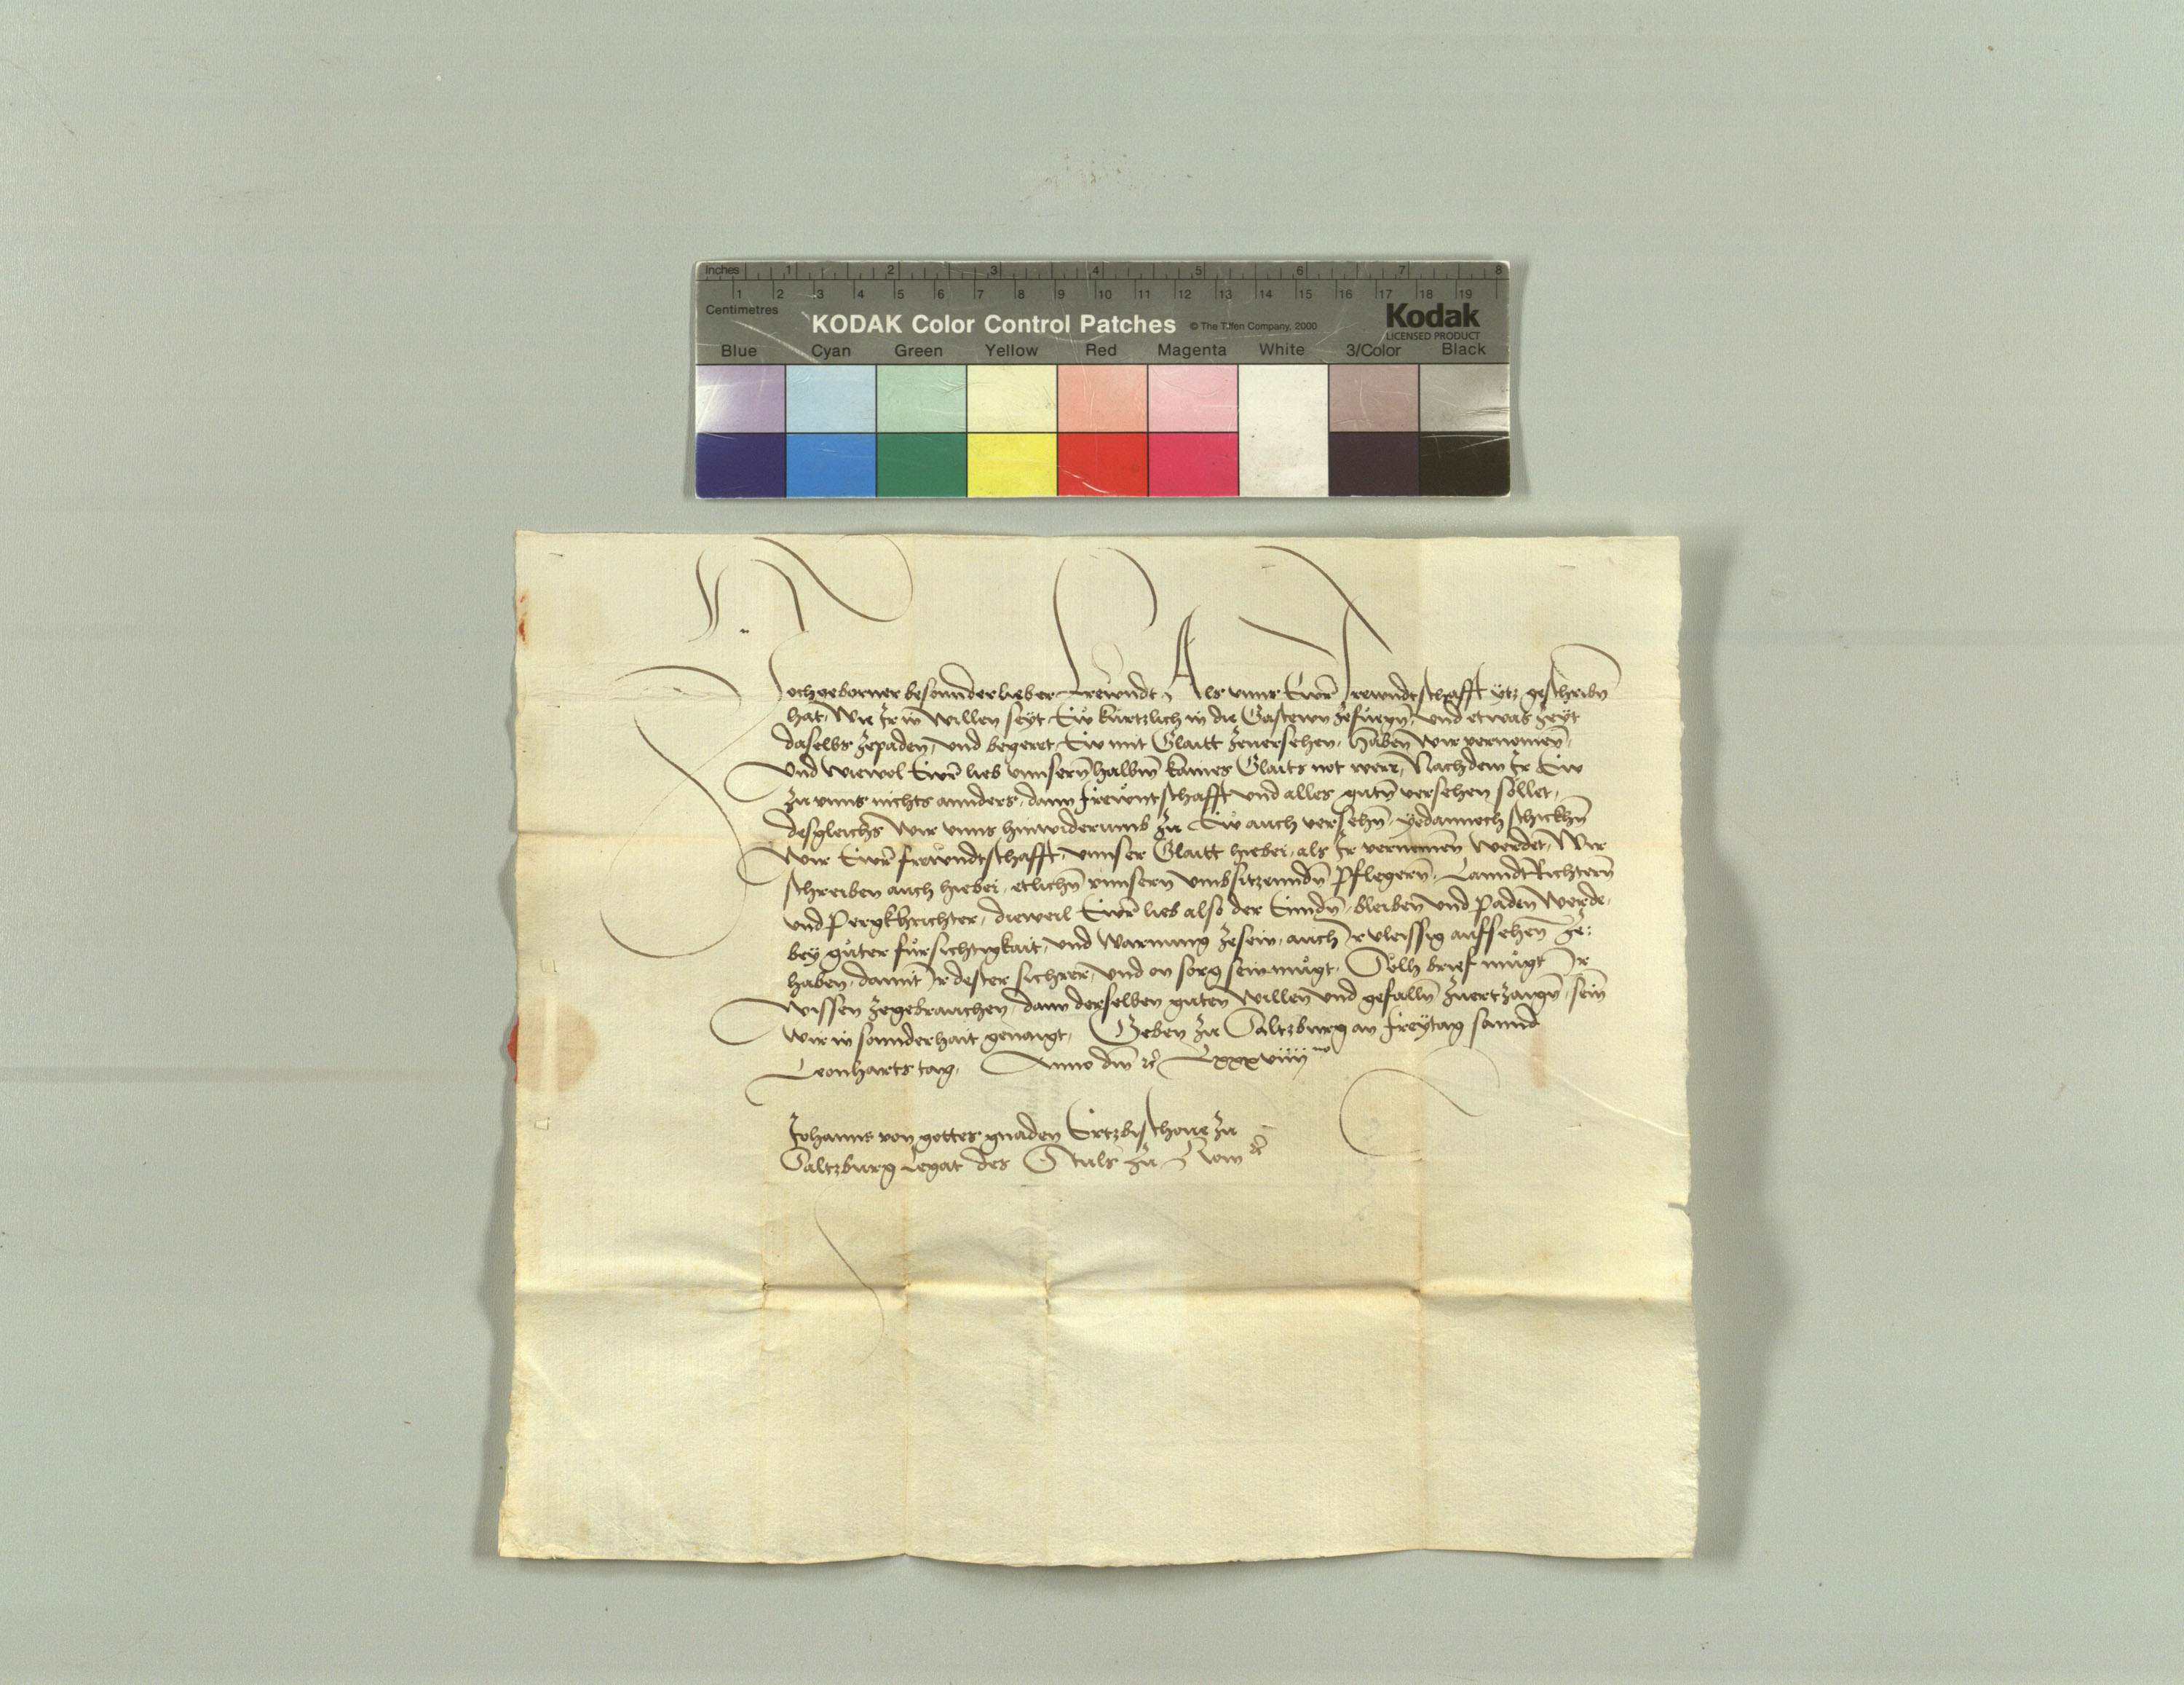 Inches 1 2 3 4 5 6 7 8
1 2 3 4 5 6 7 8 9 10 11 12 13 14 15 16 17 18 19
Centimetres
KODAK Color Control Patches © The Tiffen Company, 2000 Kodak
LICENSED PRODUCT
Blue Cyan Green Yellow Red Magenta White 3/Color Black
Hochgeborner besonnder lieber Frewndt, Als vnns Ewr̄ Frewndtschafft ytz geschribn̄
hat, Wie Ir in willen seyt, Ew kurtzlich in die Gastewn zefuegn̄, vnd etwas zeyt
daselbs zepaden, vnd begeret Ew mit Glaitt zeuersehen, haben wir vernomen̄,
Vnd wiewol Ewr̄ lieb vnnsern̄halbm̄ kaines Glaits not were, Nachdem Ir Ew
zu vnns nichts annders, dann frewntschafft vnd alles gutn̄ versehen sollet,
desgleichs wir vnns hinwiderumb zu Ew auch versehn̄, yedannoch schickhn̄
Wir Ewr̄ frewndtschafft, vnnser Glaitt hiebei, als Ir vernemen̄ werdet, Wir
schreiben auch hiebei, etlichn̄ vnnsern vmbsitzenndn̄ Pflegern̄, LanndtRichtern̄
vnd Pergkhrichter, dieweil Ewr̄ lieb also der Enndn̄, bleiben vnd paden werde,
bey guter fursichtigkait, vnd warnung zesein, auch Ir vleissig aufsehen̄ ze:
haben, damit Ir dester sichrer, vnd on sorg sein mugt, Solh brief mugt Ir
wissen zegebrauchen, dann derselben guten willen vnd gefalln̄ zuertzaign̄, sein̄
wir in sonnderhait genaigt, Geben zu Saltzburg an freytag sannd
Leonharts tag, Anno dm̄ rc̄ Lxxxviiii no
Johanns von gottes gnaden Ertzbischoue zu
Saltzburg Legat des Stuls zu Rom rc̄